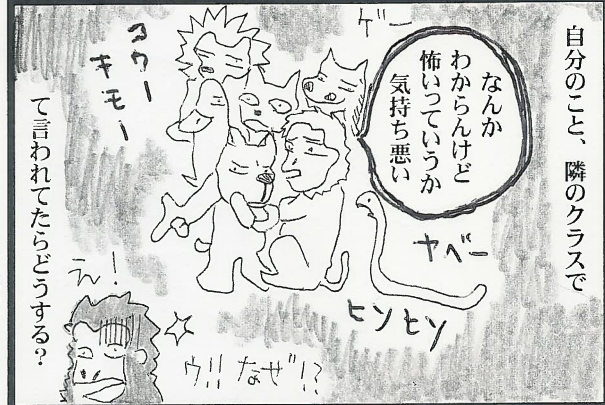 自分のこと、隣のクラスで
なんか
わからんけど
怖いっていうか
気持ち悪い
ゲー
ヤベー
ヒソヒソ
キモー
て言われてたらどうする？
え！
ウ!!なぜ!?